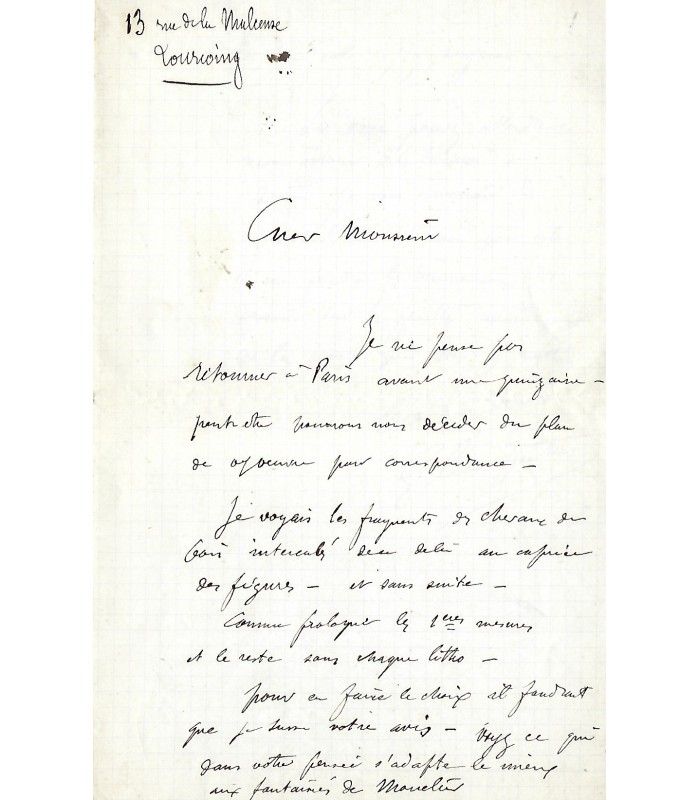 13 rue de la Malcense
Tourcoing
Cher Monsieur
Je ne pense pas
retourner à Paris avant une quinzaine –
peut etre pourrons nous décider du plan
de par correspondance –
Je voyais les fragments des chevaux de
bois intercalés deci delà au caprice
des figures – et sans suite –
Comme prologue les 1eres mesures
et le reste sous chaque litho –
pour en faire le choix il faudrait
que je susse votre avis – voyez ce qui
dans votre pensée s'adapte le mieux
aux fantaisies de